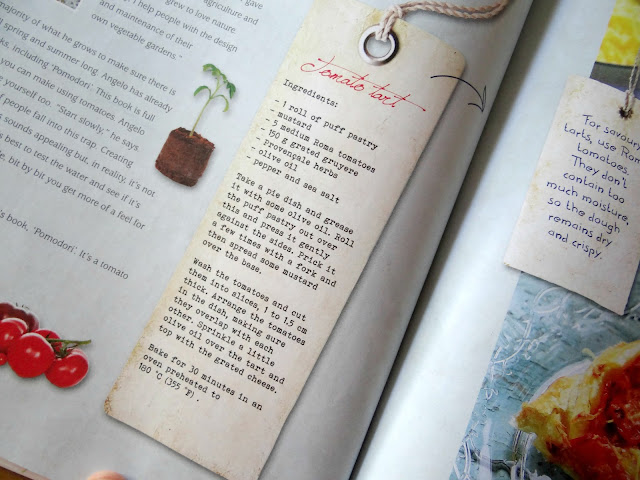 gave
agriculture and
grew to love nature.
I help people with the design
and maintenance of their
own vegetable gardens. ”
majority of what he grows to make sure there is
spring and summer long. Angelo has already
ks, including ‘Pomodori’. This book is full
you can make using tomatoes. Angelo
yourself too. “Start slowly,” he says
f people fall into this trap. Creating
sounds appealing but, in reality, it’s not
s best to test the water and see if it’s
e, bit by bit you get more of a feel for
’s book, ‘Pomodori’. It’s a tomato
Tomato tart
Ingredients:
- 1 roll of puff pastry
- mustard
- 5 medium Roma tomatoes
- 150 g grated gruyere
- Provençale herbs
- olive oil
- pepper and sea salt
Take a pie dish and grease
it with some olive oil. Roll
the puff pastry out over
this and press it gently
against the sides. Prick it
a few times with a fork and
then spread some mustard
over the base.
Wash the tomatoes and cut
them into slices, 1 to 1,5 cm
thick. Arrange the tomatoes
in the dish, making sure
they overlap with each
other. Sprinkle a little
olive oil over the tart and
top with the grated cheese.
Bake for 30 minutes in an
oven preheated to
180 °C (355 °F).
For savoury
tarts, use Roma
tomatoes.
They don't
contain too
much moisture,
so the dough
remains dry
and crispy.